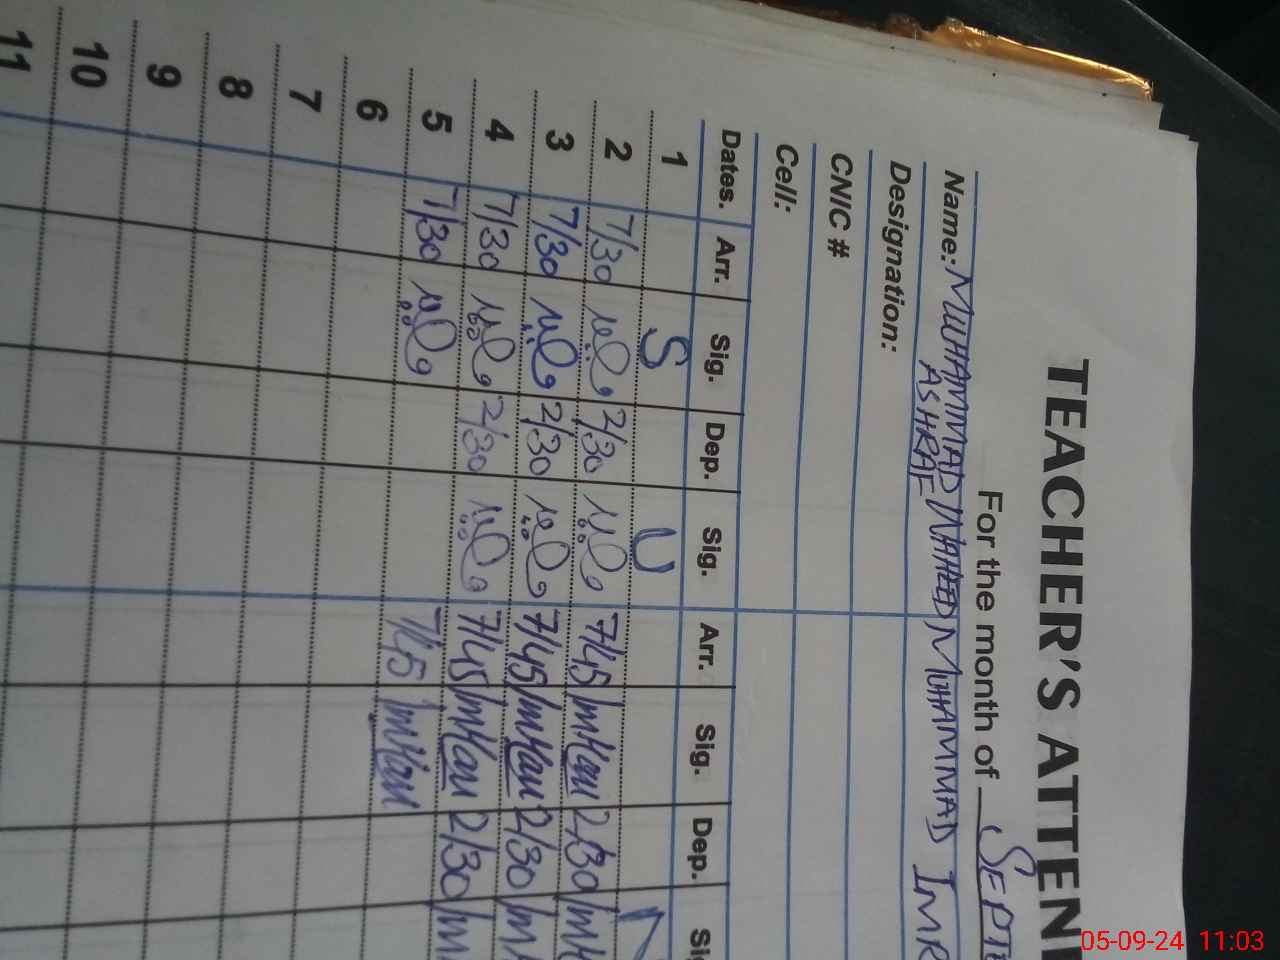 TEACHER'S ATTEN
For the month of SEPTE
Name: MUHAMMAD WAHEED ASHRAF MUHAMMAD IMR
Designation:
CNIC #
Cell:
Dates. Arr. Sig. Dep. Sig. Arr. Sig. Dep. Si
1 S U N
2 7/30 2/30 7/45 2/30
3 7/30 2/30 7/45 2/30
4 7/30 2/30 7/45 2/30
5 7/30 7/45
6
7
8
9
10
11
05-09-24 11:03